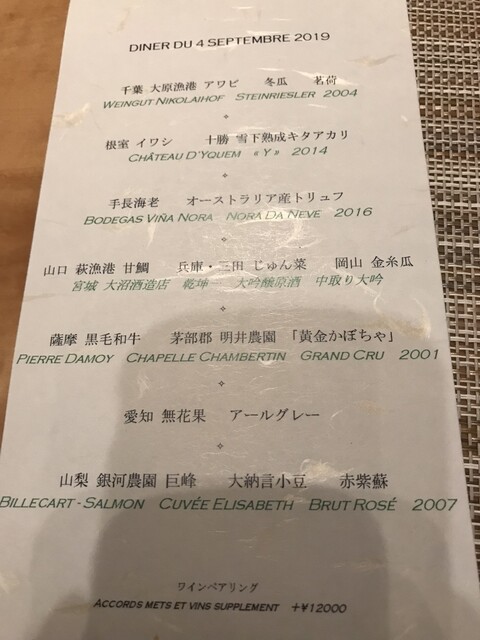 DINER DU 4 SEPTEMBRE 2019
千葉 大原漁港 アワビ 冬瓜 茗荷
WEINGUT NIKOLAIHOF STEINRIESLER 2004
根室 イワシ 十勝 雪下熟成キタアカリ
CHÂTEAU D'YQUEM « Y » 2014
手長海老 オーストラリア産トリュフ
BODEGAS VIÑA NORA NORA DA NEVE 2016
山口 萩漁港 甘鯛 兵庫・三田 じゅん菜 岡山 金糸瓜
宮城 大沼酒造店 乾坤一 大吟醸原酒 中取り大吟
薩摩 黒毛和牛 茅部郡 明井農園 「黄金かぼちゃ」
PIERRE DAMOY CHAPELLE CHAMBERTIN GRAND CRU 2001
愛知 無花果 アールグレー
山梨 銀河農園 巨峰 大納言小豆 赤紫蘇
BILLECART-SALMON CUVÉE ELISABETH BRUT ROSÉ 2007
ワインペアリング
ACCORDS METS ET VINS SUPPLEMENT +¥12000